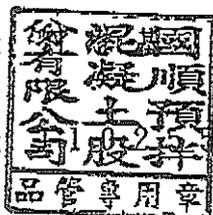 國順預拌
混凝土股
份有限公司
品管專用章